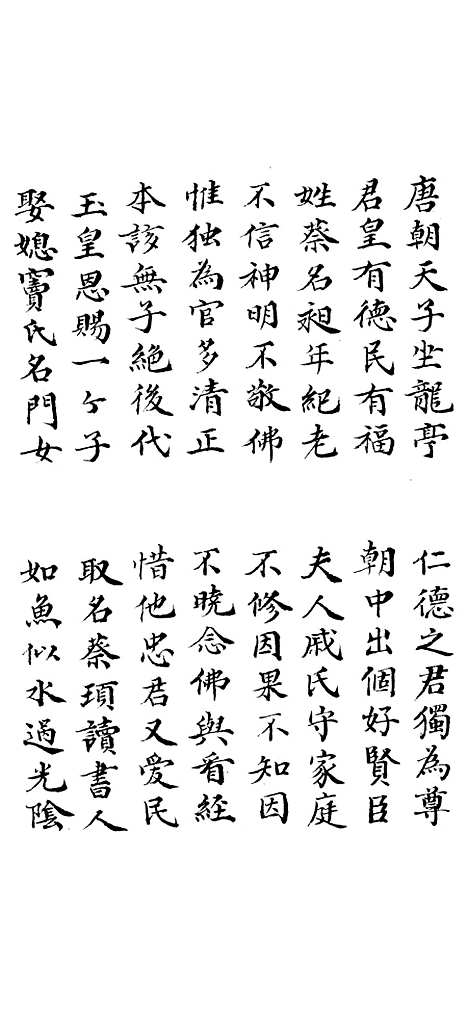 唐朝天子坐龍亭
仁德之君獨為尊
君皇有德民有福
朝中出個好賢臣
姓蔡名昶年紀老
夫人戚氏守家庭
不信神明不敬佛
不修因果不知因
惟独為官多清正
不曉念佛與看經
本該無子絕後代
惜他忠君又愛民
玉皇恩賜一个子
取名蔡頊讀書人
娶媳竇氏名門女
如魚似水過光陰